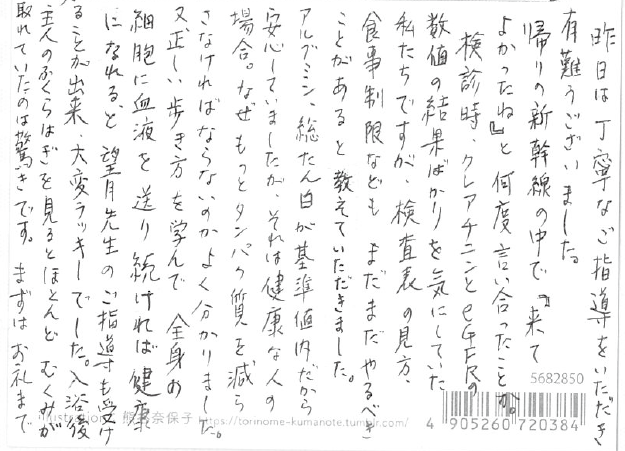 昨日は丁寧なご指導をいただき
有難うございました。
帰りの新幹線の中で『来て
よかったね』と何度言い合ったことか。
検診時、クレアチニンとeGFRの
数値の結果ばかりを気にしていた
私たちですが、検査表の見方、
食事制限などもまだまだやるべき
ことがあると教えていただきました。
アルブミン、総たん白が基準値内だから
安心していましたが、それは健康な人の
場合。なぜもっとタンパク質を減ら
さなければならないのかよく分かりました。
又正しい歩き方を学んで全身の
細胞に血液を送り続ければ健康
になれる、と望月先生のご指導も受け
ることが出来、大変ラッキーでした。入浴後
主人のふくらはぎを見るとほとんどむくみが
取れていたのは驚きです。まずはお礼まで
5682850
4 905260 720384
奈保子 https://torinome-kumanote.tumblr.com/